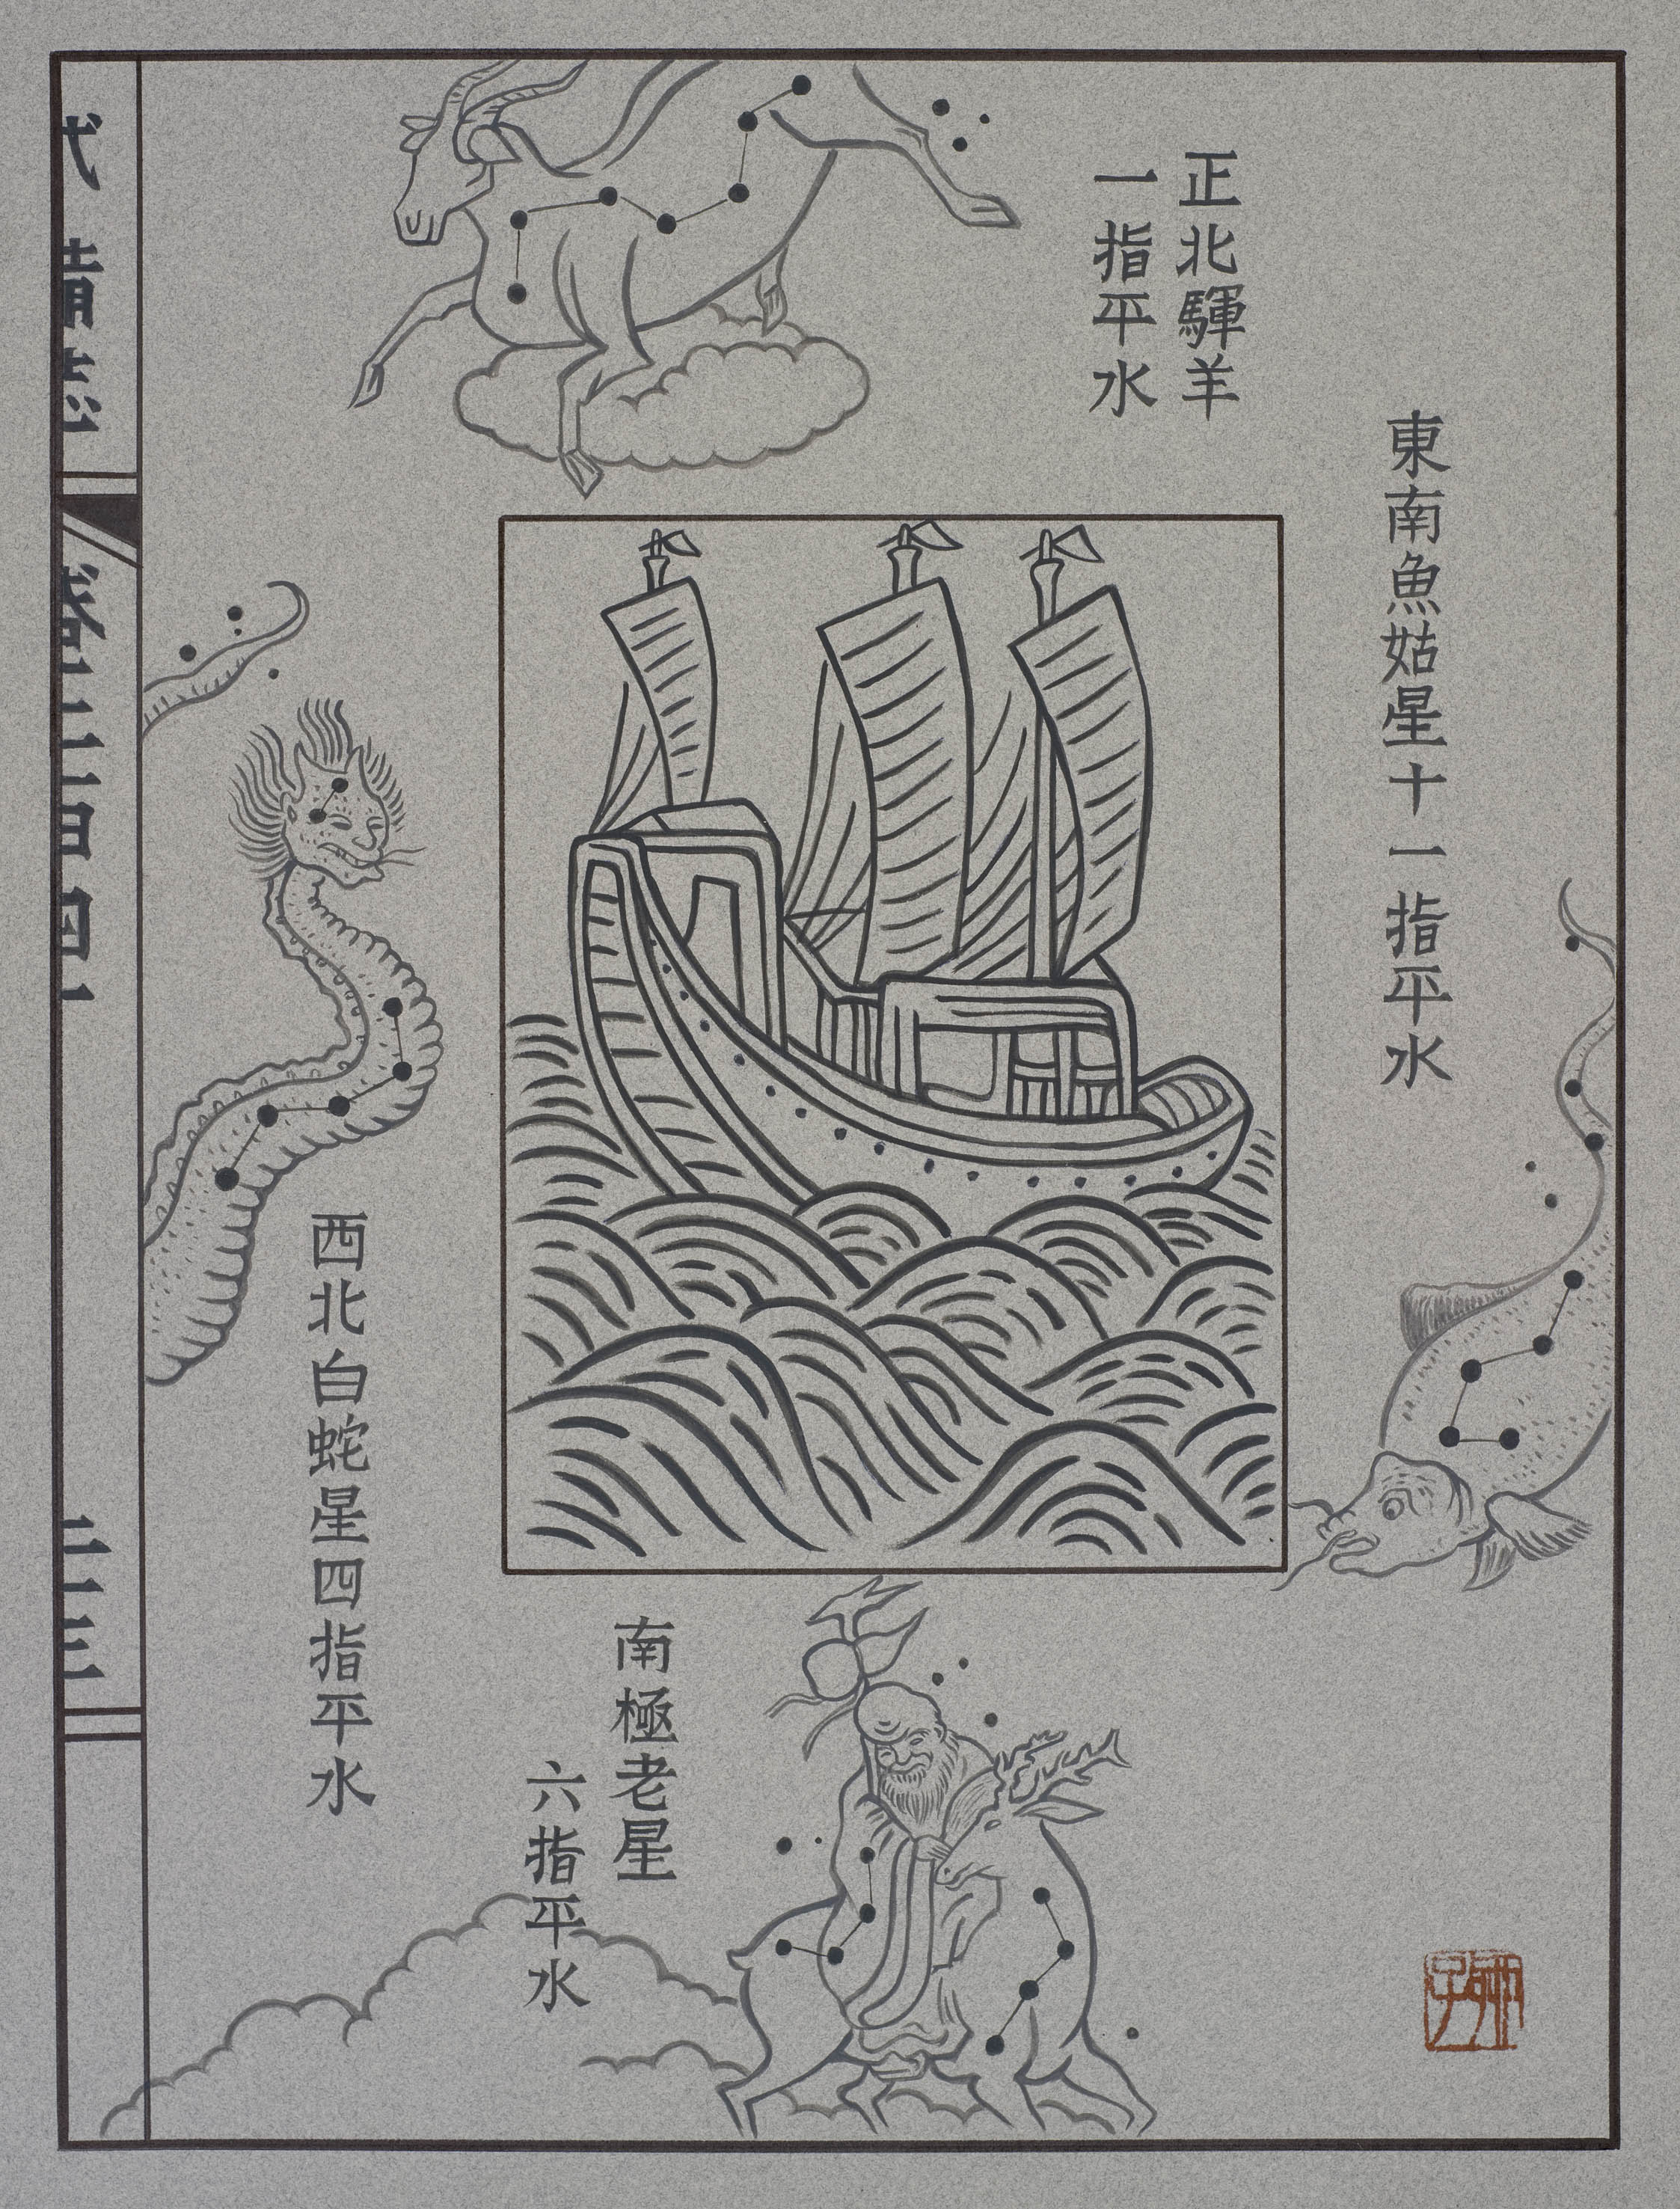 東南魚姑星十一指平水
正北羊
一指平水
南極老星
六指平水
西北白蛇星四指平水